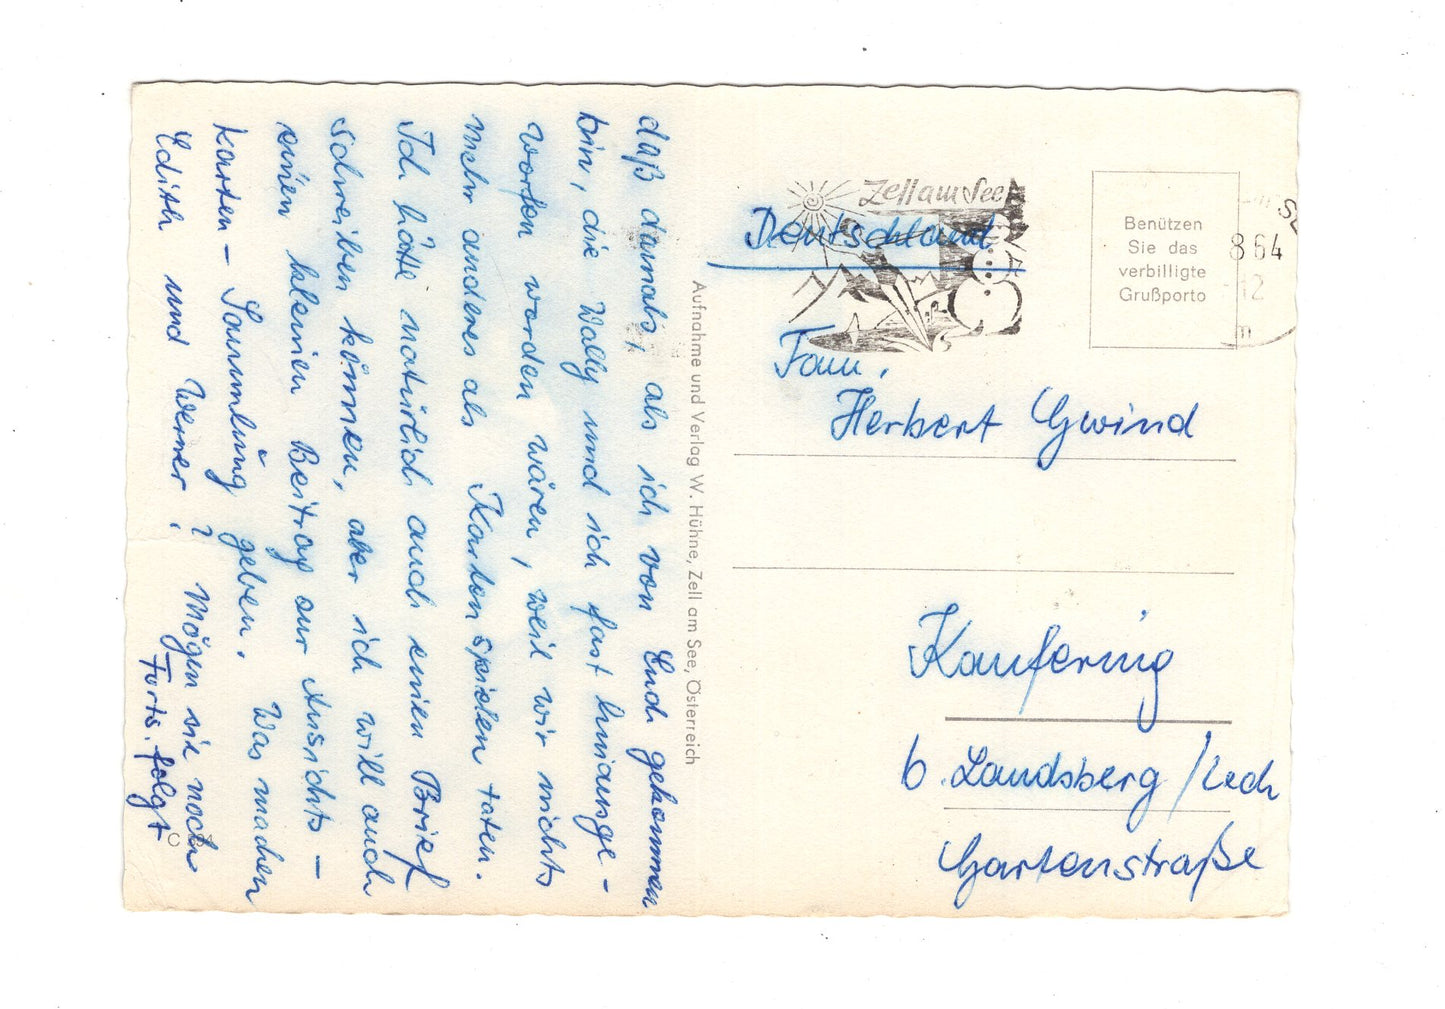 daß damals, als ich von Euch gekommen
bin, die Wally und ich fast hinausge-
worfen worden wären, weil wir nichts
mehr anderes als Karten spielen taten.
Ich hätte natürlich auch einen Brief
schreiben können, aber ich will auch
einen kleinen Beitrag zur Ansichts-
karten- Sammlung geben. Was machen
Edith und Werner? Mögen sie noch
Forts. folgt
C
Aufnahme und Verlag W. Hühne, Zell am See, Österreich
Zell am See
Benützen
Sie das
verbilligte
Grußporto
8 64
12
m
Deutschland
Fam.
Herbert Gwind
Kaufering
b. Landsberg/Lech
Gartenstraße